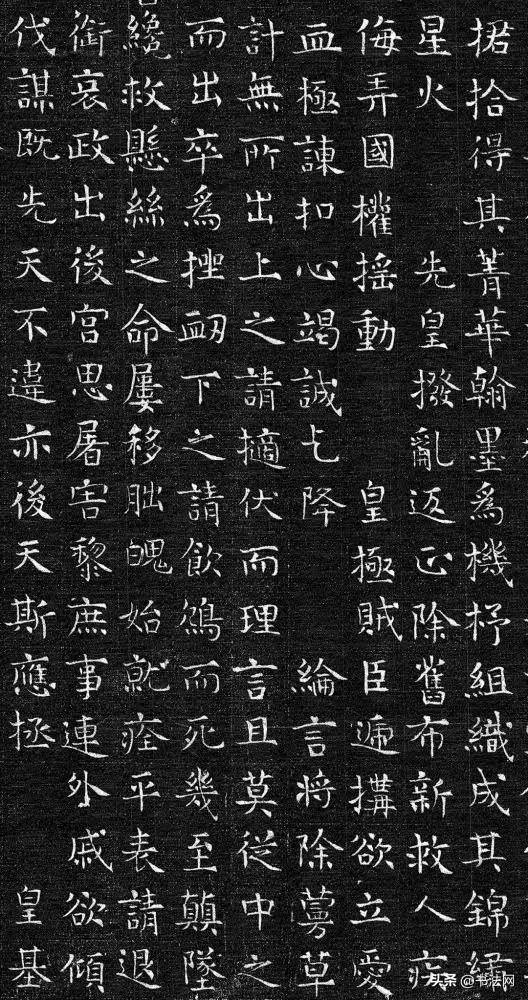 捃拾得其菁華翰墨爲機杼組織成其錦繡
星火　先皇撥亂返正除舊布新救人疾
侮弄國權摇動　皇極賊臣遞搆欲立愛
血極諫扣心竭誠乞降　綸言將除蔓草
計無所出上之請擿伏而理言且莫從中之
而出卒爲挫衂下之請飲鴆而死幾至顛墜
纔救懸絲之命屢移朏魄始就痊平表請退
銜哀政出後宮思屠害黎庶事連外戚欲傾
伐謀既先天不違亦後天斯應拯　皇基
头条 @书法网